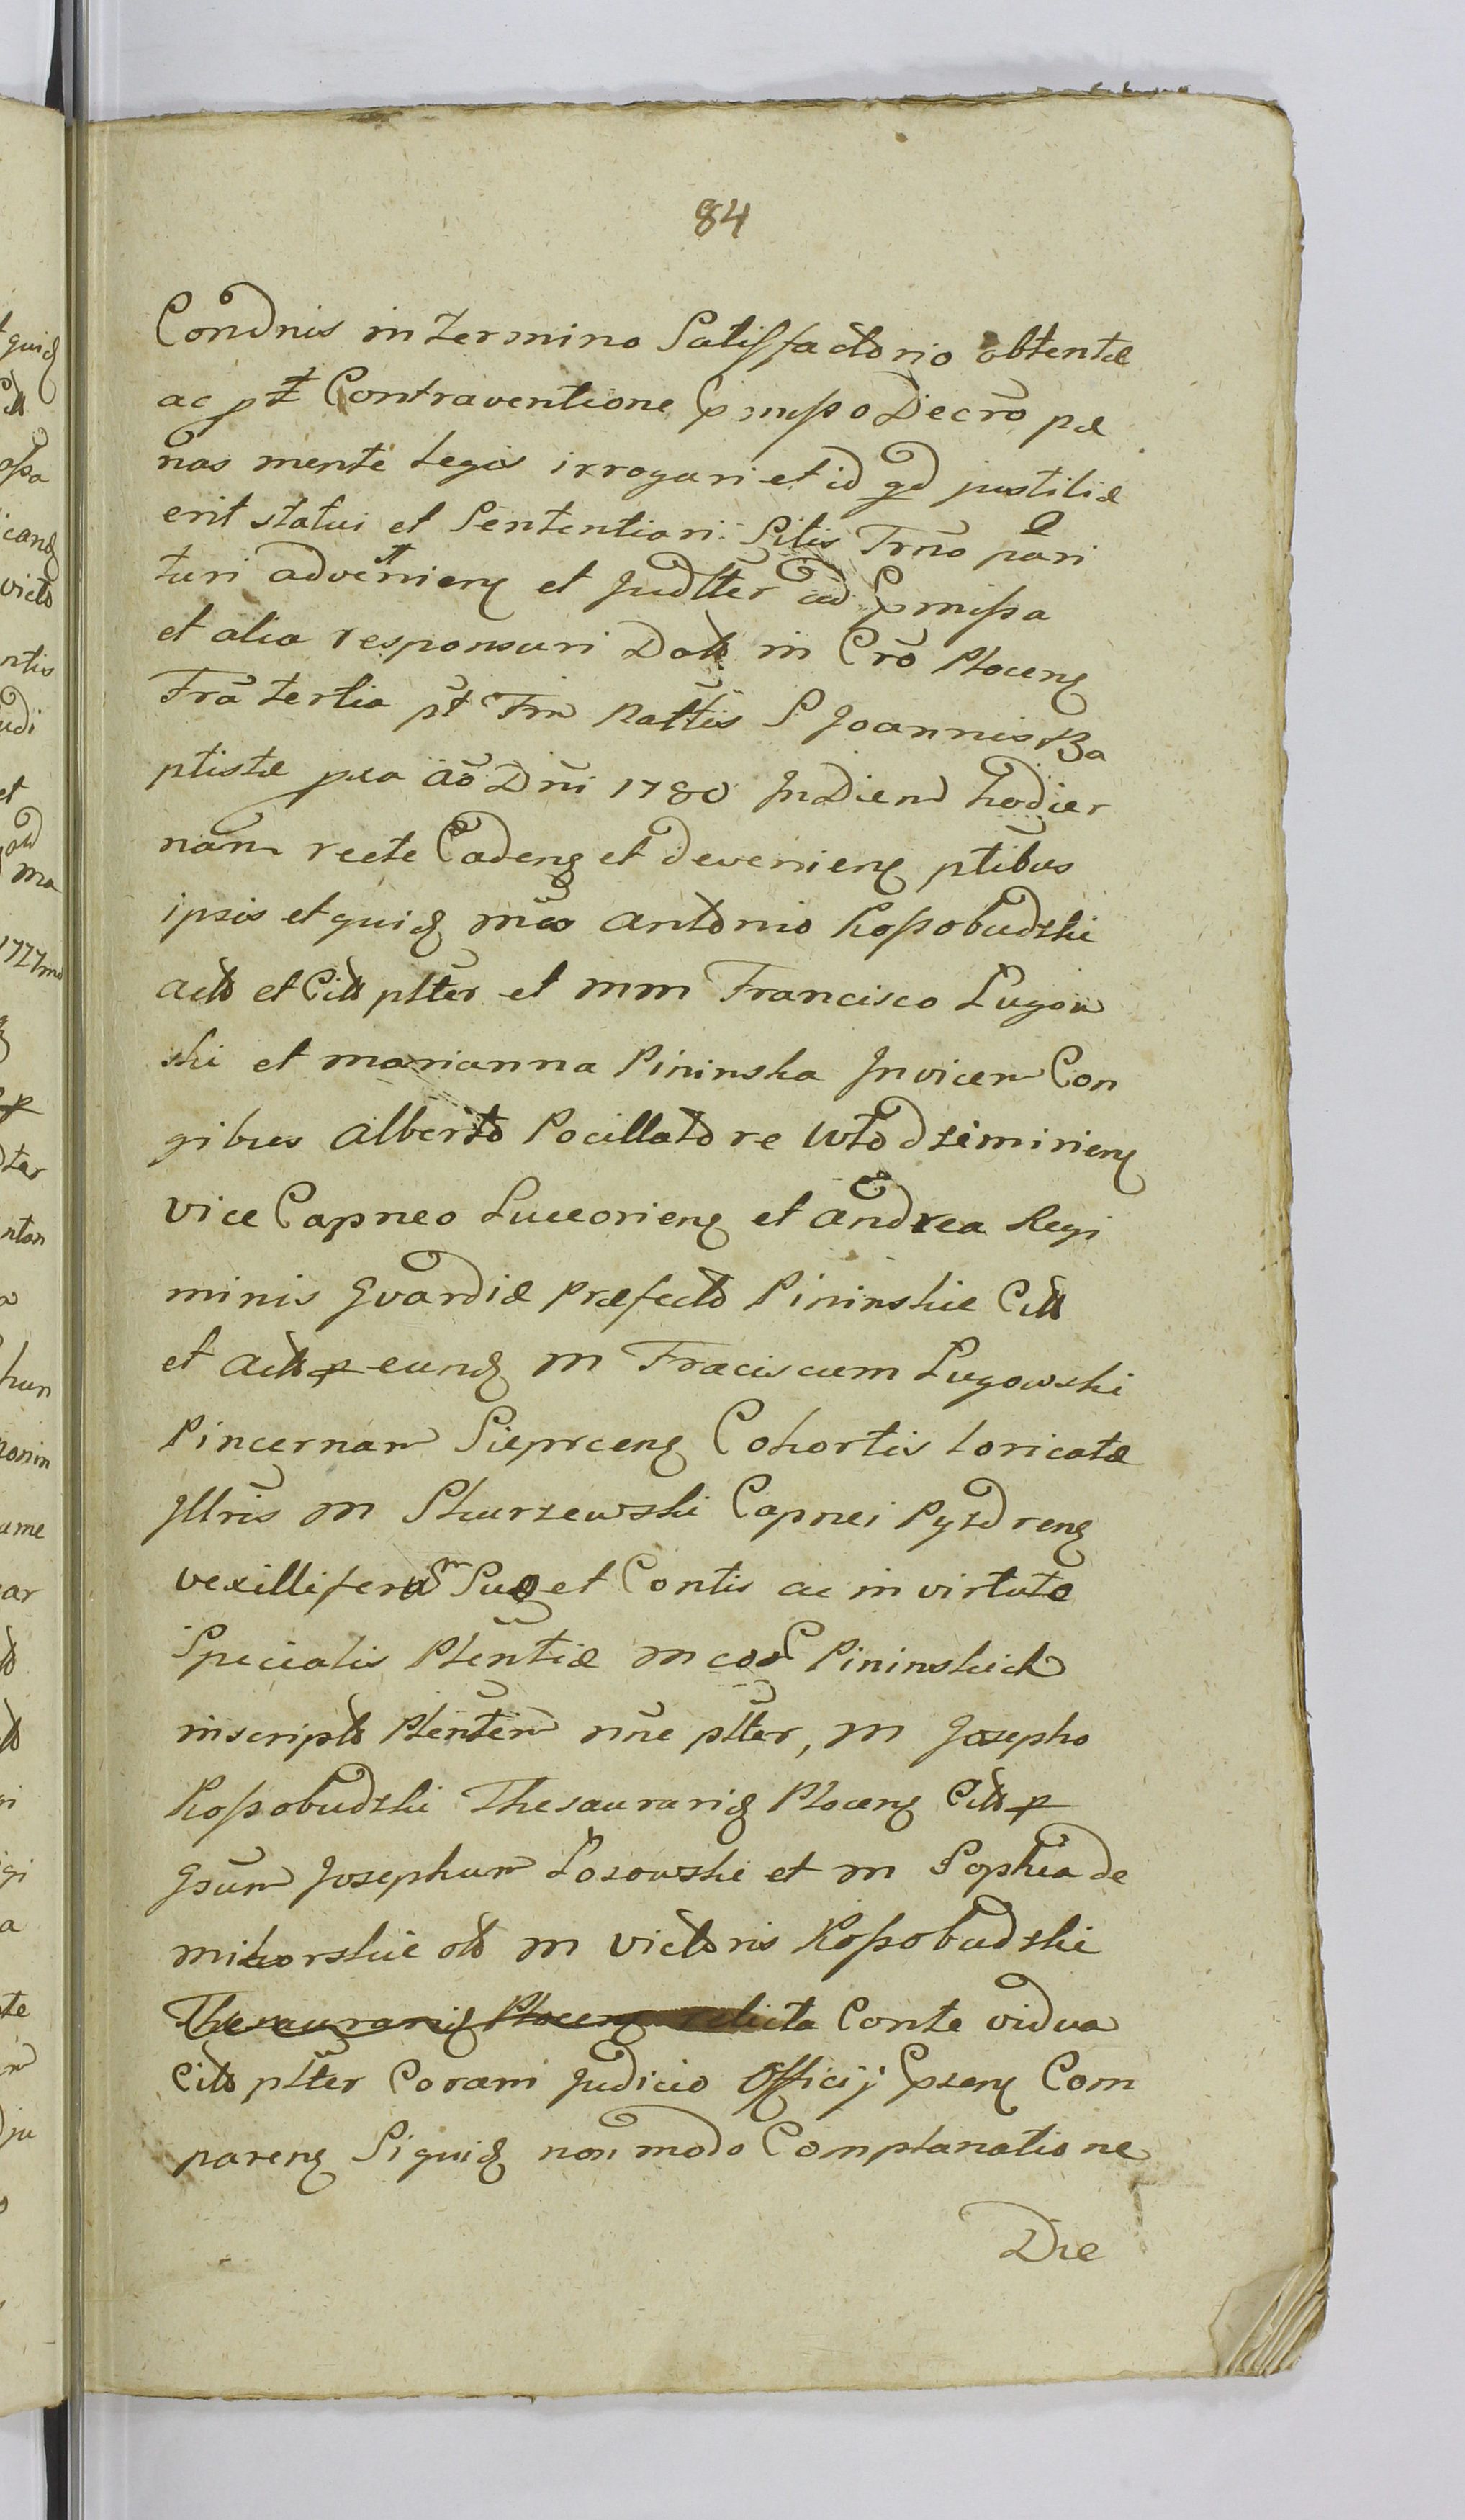 84
Condnis in termino Satisfactorio obtentæ
ac pt Contraventione præmisso Decro pæ
nas mente Legis irrogari et id qd justitiæ
erit statui et Sententiari. Sitis Trno pari
turi adventieng et Judtter ad præmissa
et alia responsuri Datt in Cro Ploceng
Fra tertia pt Fm Nattis S Joannis Ba
ptistæ pro Ao Dni 1780 In Diem hodier
nam recte Cadeng et devenieng ptibus
ipsis et quidq mco Antonio Kossobudzki
acto et Citto pltter et mm Francisco Lugow
ski et Marianna Pininska Invicem Con
gibus Alberto Pocillatore Włodzimirieng
vice Capneo Luceorieng et Andrea Regi
minis Gvardiæ Præfecto Pininskie Citt
et actt p eundq M Fraciscum Lugowski
Pincernam Sieprceng Cohortis loricatæ
Jllris M Skurzewski Capnei Pyzdreng
vexilliferum Suo et Contis ac in virtute
Specialis Pltentiæ Mcor Pininskich
inscripto Pltentem nne pltter, M Josepho
Kossobudzki Thesaurariq Ploceng Citto p
Gsum Josephum Łosowski et M Sophia de
Mikorskie olt M Victoris Kossobudzki
Thesaurariq Ploceng relicta Conte vidua
Citt pltter Coram Judicio Officij præseng Com
pareng Siquidq non modo Complanatione
Die